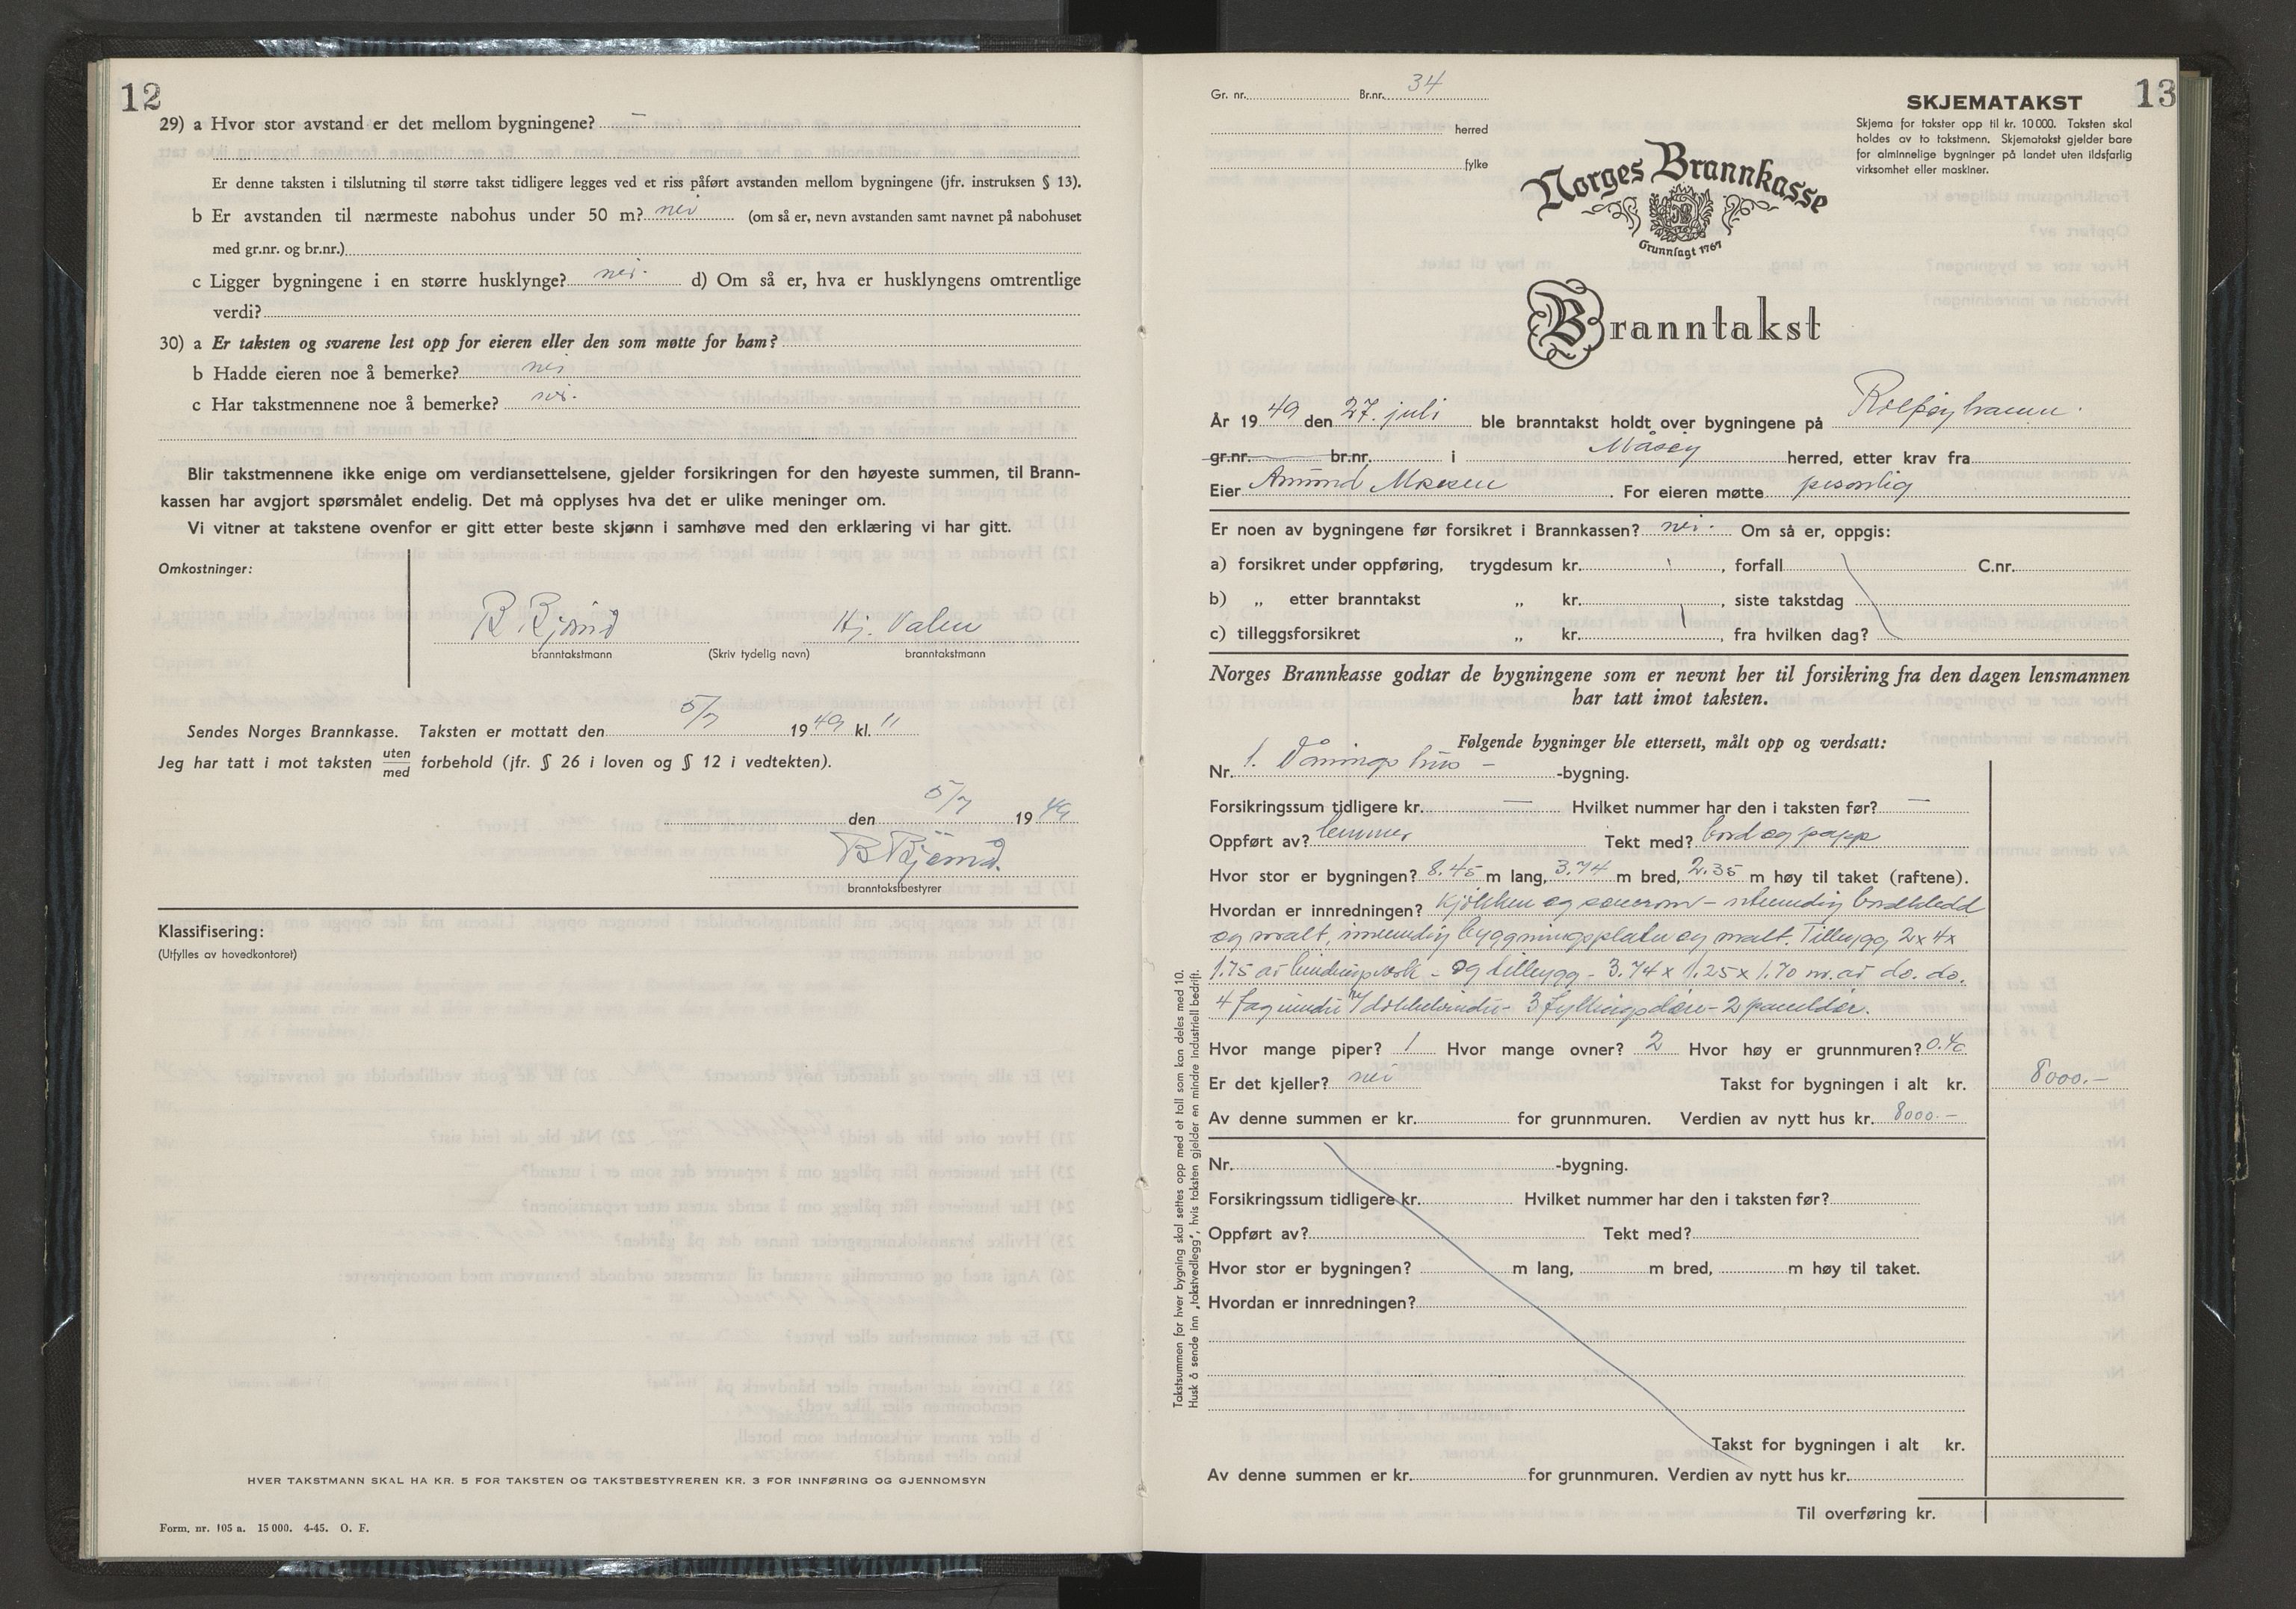 12
29) a Hvor stor avstand er det mellom bygningene? —
Er denne taksten i tilslutning til større takst tidligere legges ved et riss påført avstanden mellom bygningene (jfr. instruksen § 13).
b Er avstanden til nærmeste nabohus under 50 m? nei (om så er, nevn avstanden samt navnet på nabohuset
med gr.nr. og br.nr.)
c Ligger bygningene i en større husklynge? nei. d) Om så er, hva er husklyngens omtrentlige
verdi?
30) a Er taksten og svarene lest opp for eieren eller den som møtte for ham?
b Hadde eieren noe å bemerke? nei
c Har takstmennene noe å bemerke? nei.
Blir takstmennene ikke enige om verdiansettelsene, gjelder forsikringen for den høyeste summen, til Brann-
kassen har avgjort spørsmålet endelig. Det må opplyses hva det er ulike meninger om.
Vi vitner at takstene ovenfor er gitt etter beste skjønn i samhøve med den erklæring vi har gitt.
Omkostninger:
Hj. Valen
branntakstmann (Skriv tydelig navn) branntakstmann
Sendes Norges Brannkasse. Taksten er mottatt den 5/7 1949 kl. 11
Jeg har tatt i mot taksten uten/med forbehold (jfr. § 26 i loven og § 12 i vedtekten).
den 5/7 1949
branntakstbestyrer
Klassifisering:
(Utfylles av hovedkontoret)
HVER TAKSTMANN SKAL HA KR. 5 FOR TAKSTEN OG TAKSTBESTYREREN KR. 3 FOR INNFØRING OG GJENNOMSYN
Form. nr. 105 a. 15 000. 4-45. O. F.
13
Gr. nr. Br.nr. 34
herred
fylke
SKJEMATAKST
Skjema for takster opp til kr. 10 000. Taksten skal
holdes av to takstmenn. Skjematakst gjelder bare
for alminnelige bygninger på landet uten ildsfarlig
virksomhet eller maskiner.
Norges Brannkasse
Grunnlagt 1767
Branntakst
År 1949 den 27. juli ble branntakst holdt over bygningene på
gr.nr. br.nr. i Måsøy herred, etter krav fra
Eier Amund . For eieren møtte personlig
Er noen av bygningene før forsikret i Brannkassen? nei. Om så er, oppgis:
a) forsikret under oppføring, trygdesum kr. , forfall C.nr.
b) „ etter branntakst „ kr. , siste takstdag
c) tilleggsforsikret „ kr. , fra hvilken dag?
Norges Brannkasse godtar de bygningene som er nevnt her til forsikring fra den dagen lensmannen
har tatt imot taksten.
Følgende bygninger ble ettersett, målt opp og verdsatt:
Nr. 1. Våningshus — -bygning.
Forsikringssum tidligere kr. — Hvilket nummer har den i taksten før? —
Oppført av? lemmer Tekt med? bord og papp
Hvor stor er bygningen? 8.45 m lang, 3.74 m bred, 2.35 m høy til taket (raftene).
Hvordan er innredningen? Kjøkken og soverom - utvendig bordkledd
og malt, innvendig bygningsplater og malt. Tilbygg 2 x 4 x
1.75 av bindingsverk - og tilbygg - 3.74 x 1.25 x 1.70 m. av do. do.
4 fag vinduer 3 fyllingsdører - 2 paneldør.
Hvor mange piper? 1 Hvor mange ovner? 2 Hvor høy er grunnmuren? 0.40
Er det kjeller? nei Takst for bygningen i alt kr. 8000.-
Av denne summen er kr. for grunnmuren. Verdien av nytt hus kr. 8000.-
Nr. -bygning.
Forsikringssum tidligere kr. Hvilket nummer har den i taksten før?
Oppført av? Tekt med?
Hvor stor er bygningen? m lang, m bred, m høy til taket.
Hvordan er innredningen?
Takst for bygningen i alt kr.
Av denne summen er kr. for grunnmuren. Verdien av nytt hus kr.
Til overføring kr.
Takstsummen for hver bygning skal settes opp med et tall som kan deles med 10.
Husk å sende inn „takstvedlegg", hvis taksten gjelder en mindre industriell bedrift.